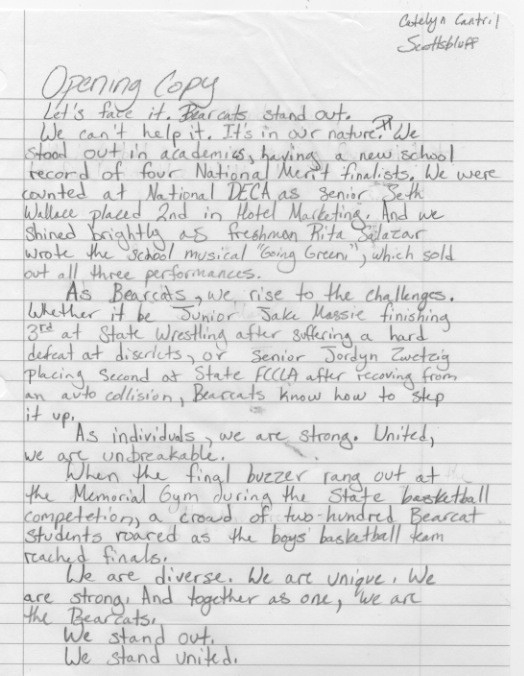 Catelyn Cantril
Scottsbluff
Opening Copy
Let's face it. Bearcats stand out.
We can't help it. It's in our nature. ¶ We
stood out in academics, having a new school
record of four National Merit finalists. We were
counted at National DECA as senior Seth
Wallace placed 2nd in Hotel Marketing. And we
shined brightly as freshman Rita Salazar
wrote the school musical "Going Green!", which sold
out all three performances.
As Bearcats, we rise to the challenges.
Whether it be Junior Jake Massie finishing
3rd at State Wrestling after suffering a hard
defeat at districts, or senior Jordyn Zwetzig
placing second at State FCCLA after recoving from
an auto collision, Bearcats know how to step
it up.
As individuals, we are strong. United,
we are unbreakable.
When the final buzzer rang out at
the Memorial Gym during the State basketball
competetion, a crowd of two-hundred Bearcat
students roared as the boys' basketball team
reached finals.
We are diverse. We are unique. We
are strong. And together as one, we are
the Bearcats.
We stand out.
We stand united.